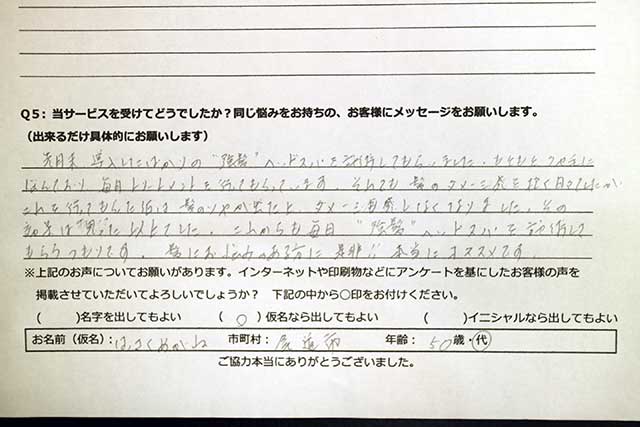 Q5：当サービスを受けてどうでしたか？同じ悩みをお持ちの、お客様にメッセージをお願いします。
（出来るだけ具体的にお願いします）
先日来 導入したばかりの "強髪" ヘッドスパを施術してもらいました。もともとクセ毛に
悩んでおり、毎月トリートメントを行ってもらっています。それでも髪のダメージ感を抱く日々でしたが
これを行ってもらった後は 髪のツヤが出たし、ダメージも感じなくなりました。その
効果は 以上でした。これからも毎月 "強髪" ヘッドスパを施術して
もらうつもりです。髪にお悩みのある方に是非!! 本当にオススメです。
※上記のお声についてお願いがあります。インターネットや印刷物などにアンケートを基にしたお客様の声を
掲載させていただいてよろしいでしょうか？ 下記の中から○印をお付けください。
（　）名字を出してもよい （○）仮名なら出してもよい （　）イニシャルなら出してもよい
お名前（仮名）：はっさくめがね 市町村：尾道市 年齢：50歳・代
ご協力本当にありがとうございました。